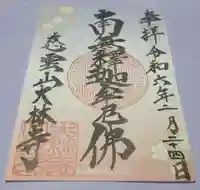 奉拝 令和六年二月二十四日
南無釋迦牟尼佛
慈雲山大林寺